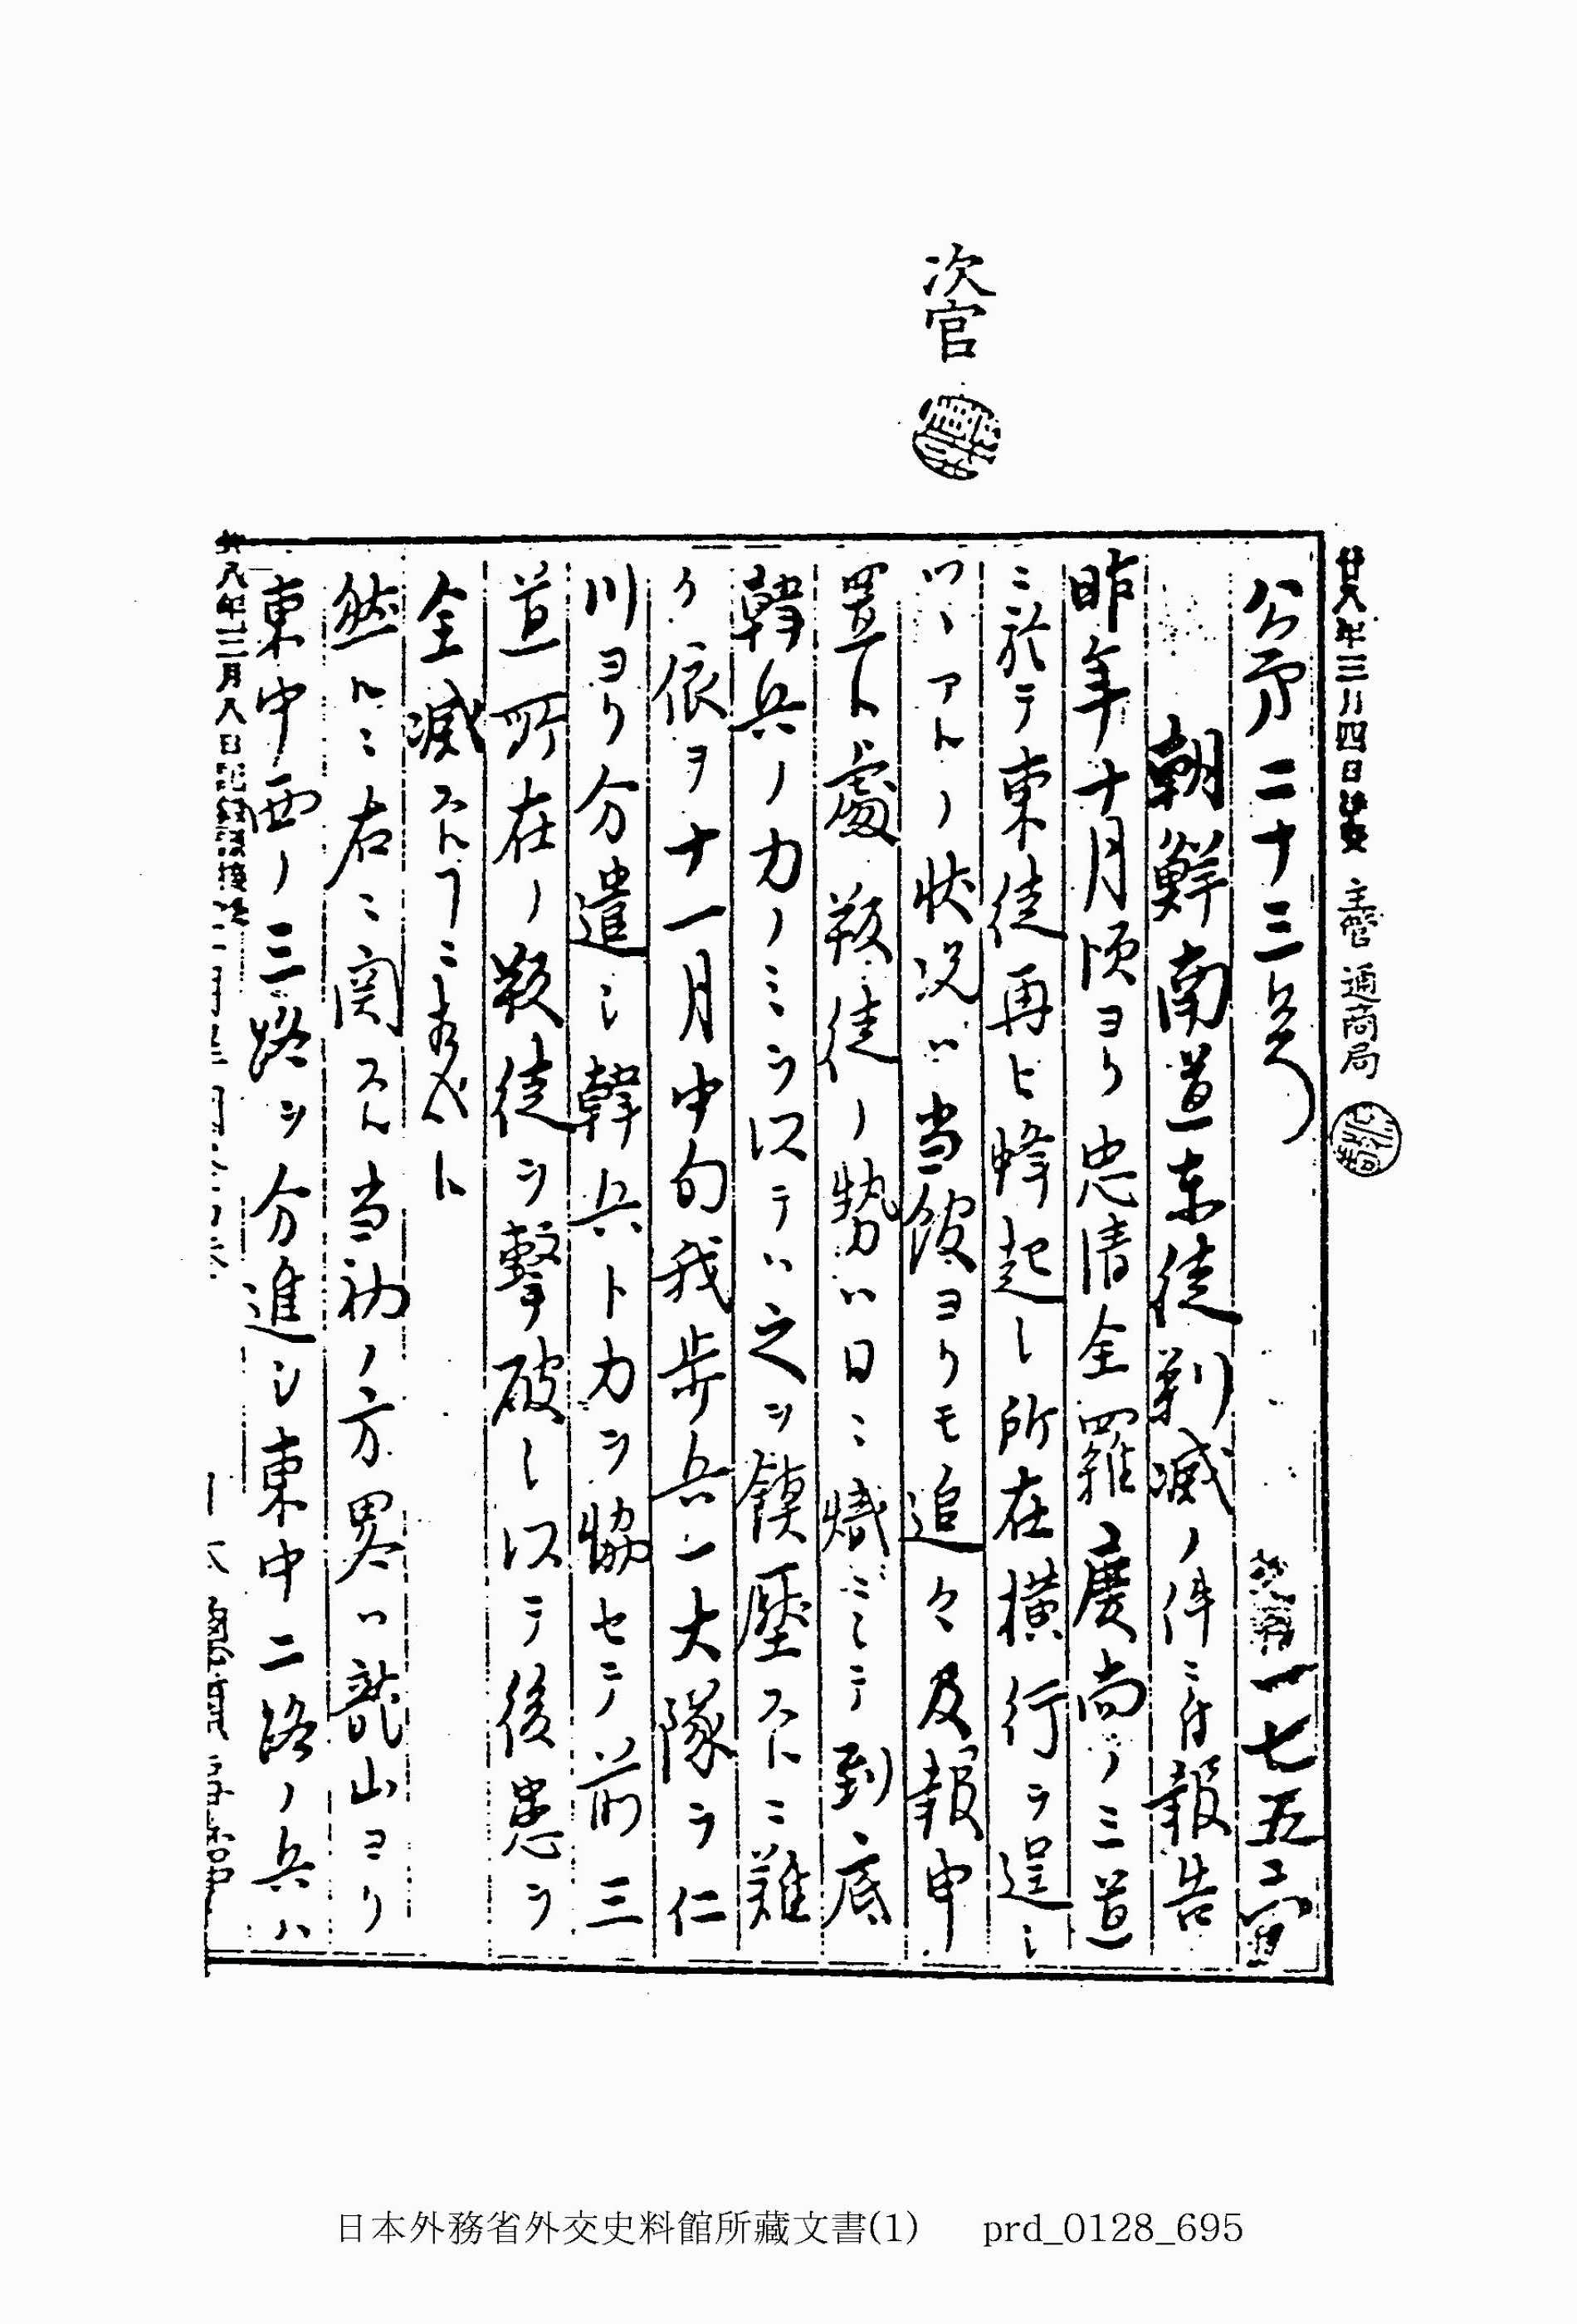 次官
廿八年三月四日接受 主管 通商局
公第二十三号
受第一七五二号
朝鮮南道東徒剿滅ノ件ニ付報告
昨年十月頃ヨリ忠清全羅慶尚ノ三道
ニ於テ東徒再ヒ蜂起シ所在横行ヲ逞シ
ツヽアルノ状況ハ当館ヨリモ追々及報申
置ト處叛徒ノ勢ハ日ニ熾ニシテ到底
韓兵ノ力ノミヲ以テハ之ヲ鎮圧スルニ難
ク依テ十一月中旬我歩兵一大隊ヲ仁
川ヨリ分遣シ韓兵ト力ヲ協セテ前三
道所在ノ叛徒ヲ撃破シ以テ後患ヲ
全滅スルヿニ
然ルニ右ニ関スル当初ノ方畧ハ龍山ヨリ
東中西ノ三路ヲ分進シ東中二路ノ兵ハ
廿八年三月八日
日本外務省外交史料館所藏文書(1) prd_0128_695